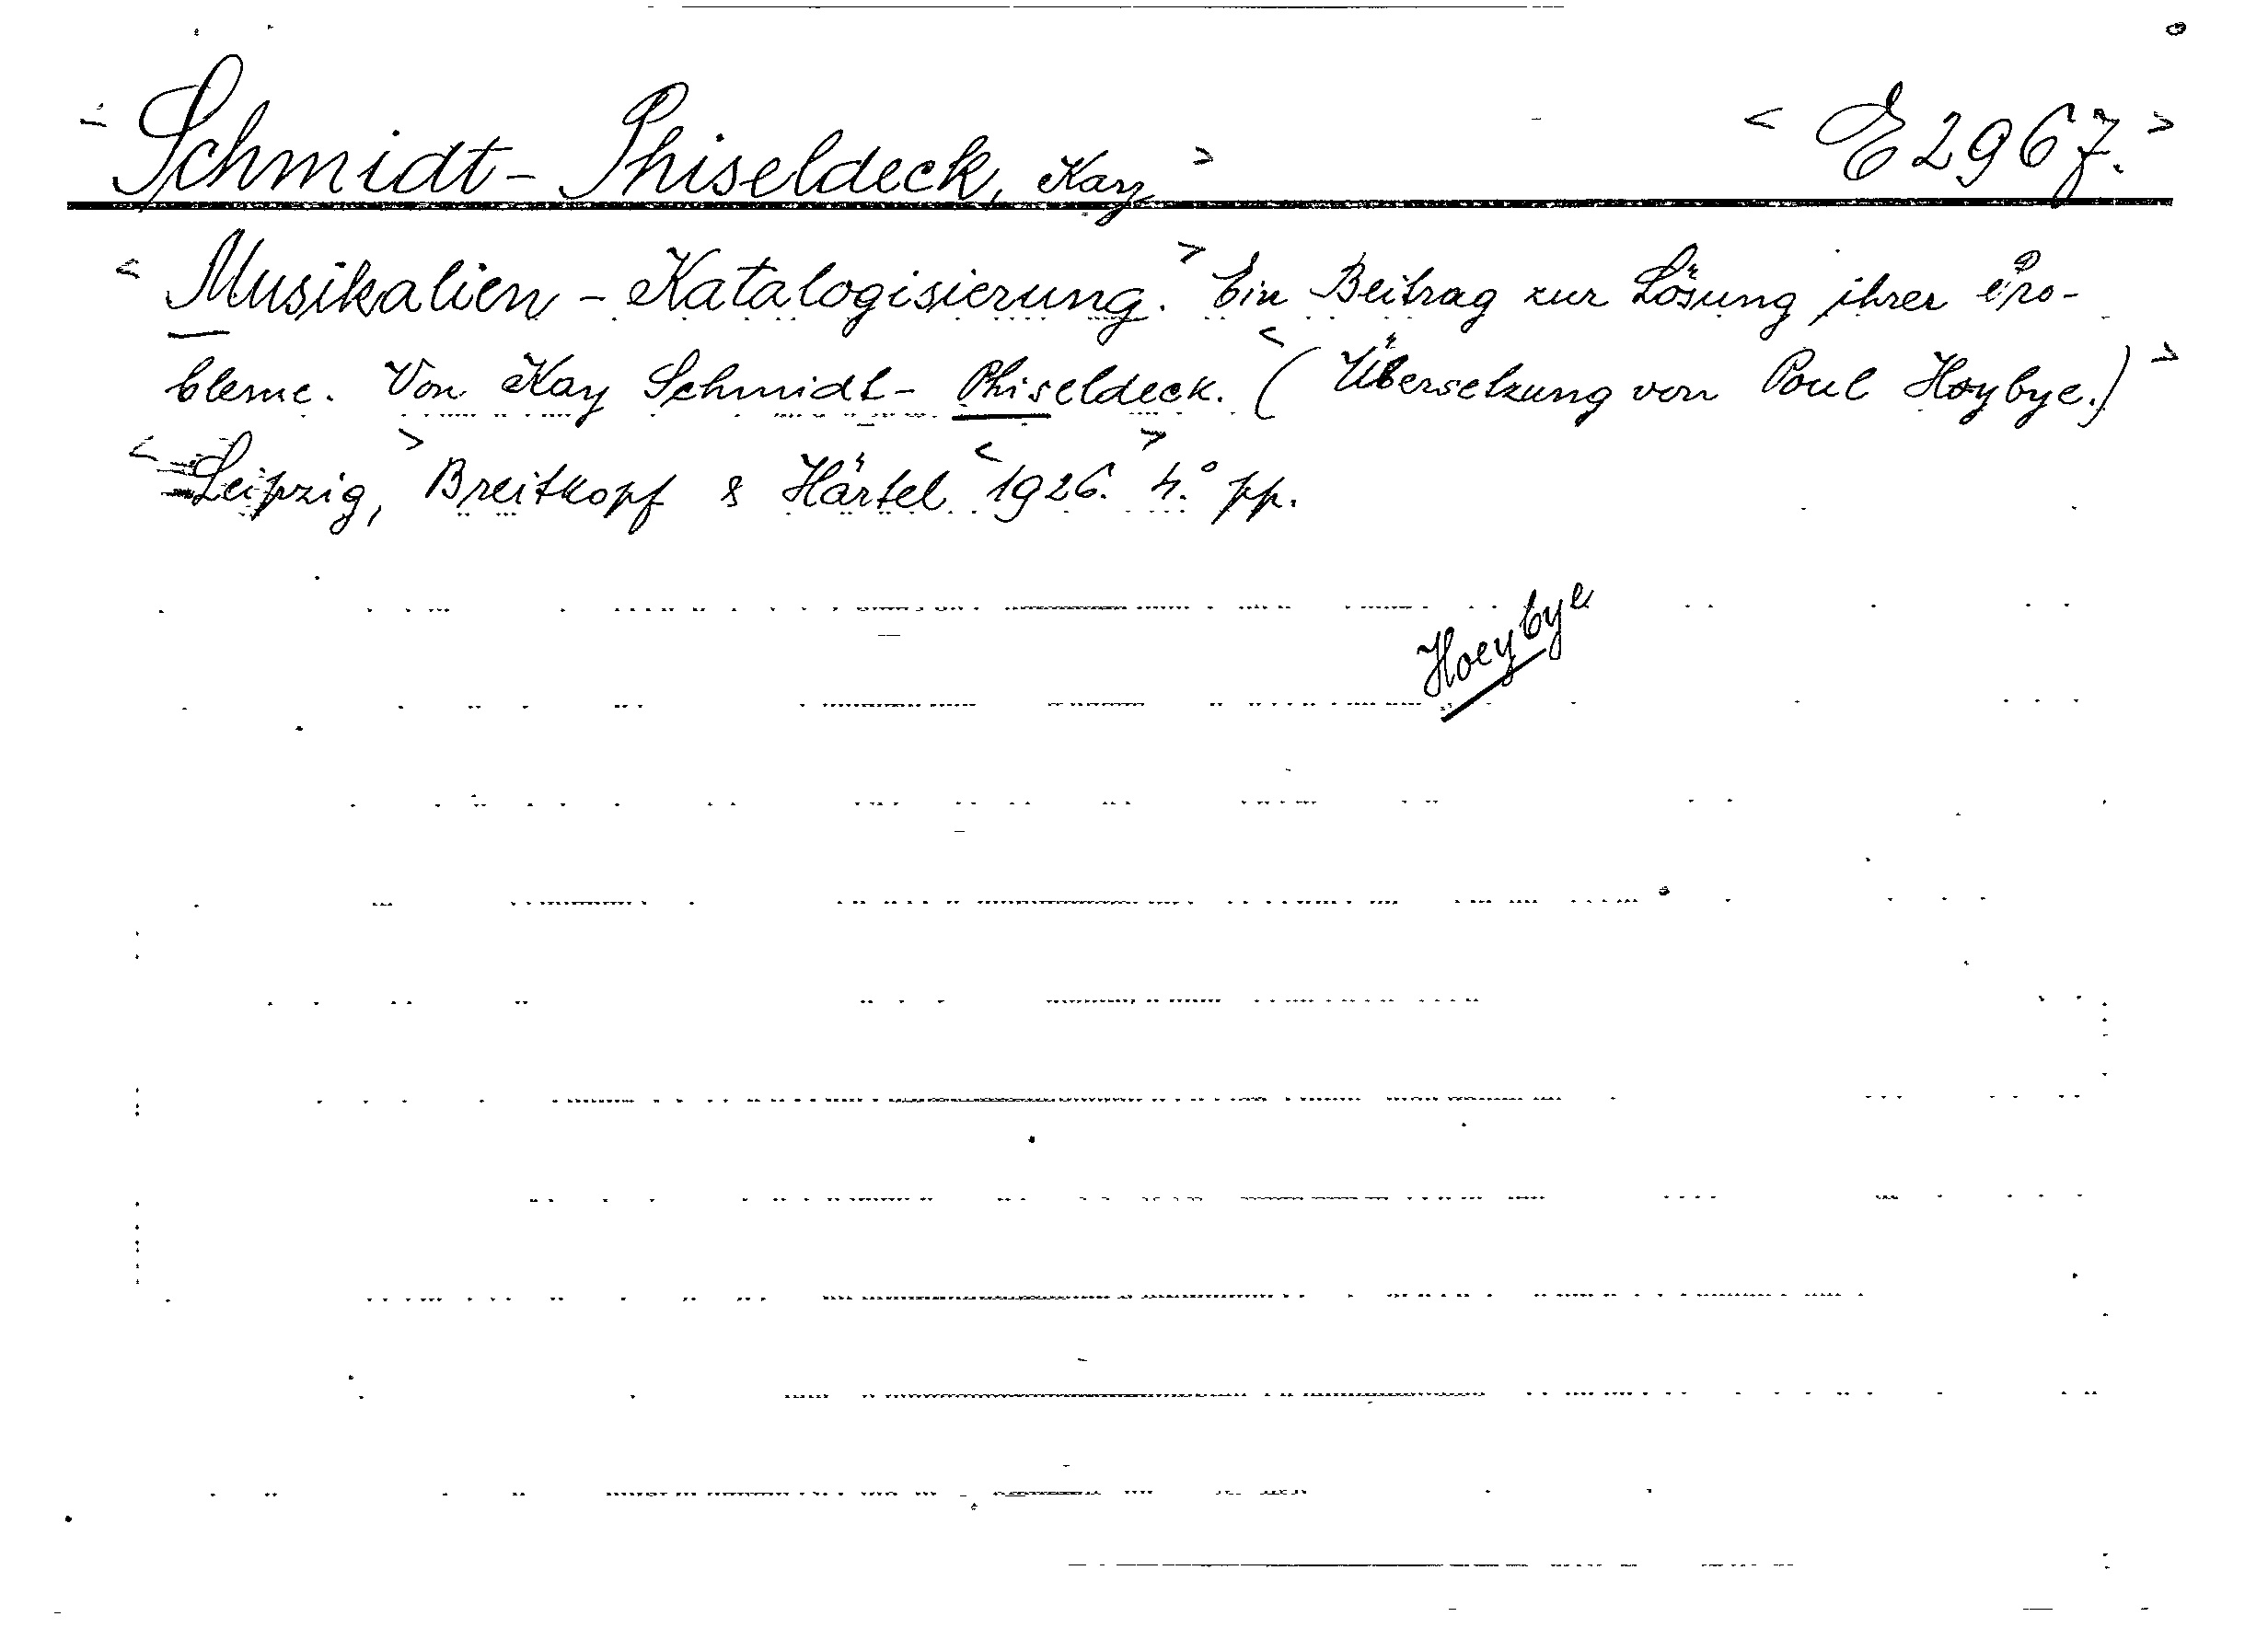 < Schmidt-Phiseldeck, Kay > < E 2967. >
< Musikalien-Katalogisierung. > Ein Beitrag zur Lösung ihrer Pro-
bleme. Von Kay Schmidt-Phiseldeck. < (Übersetzung von Poul Hoybye.) >
< Leipzig, > Breitkopf & Härtel < 1926. > 4.° pp.
Hoeybye